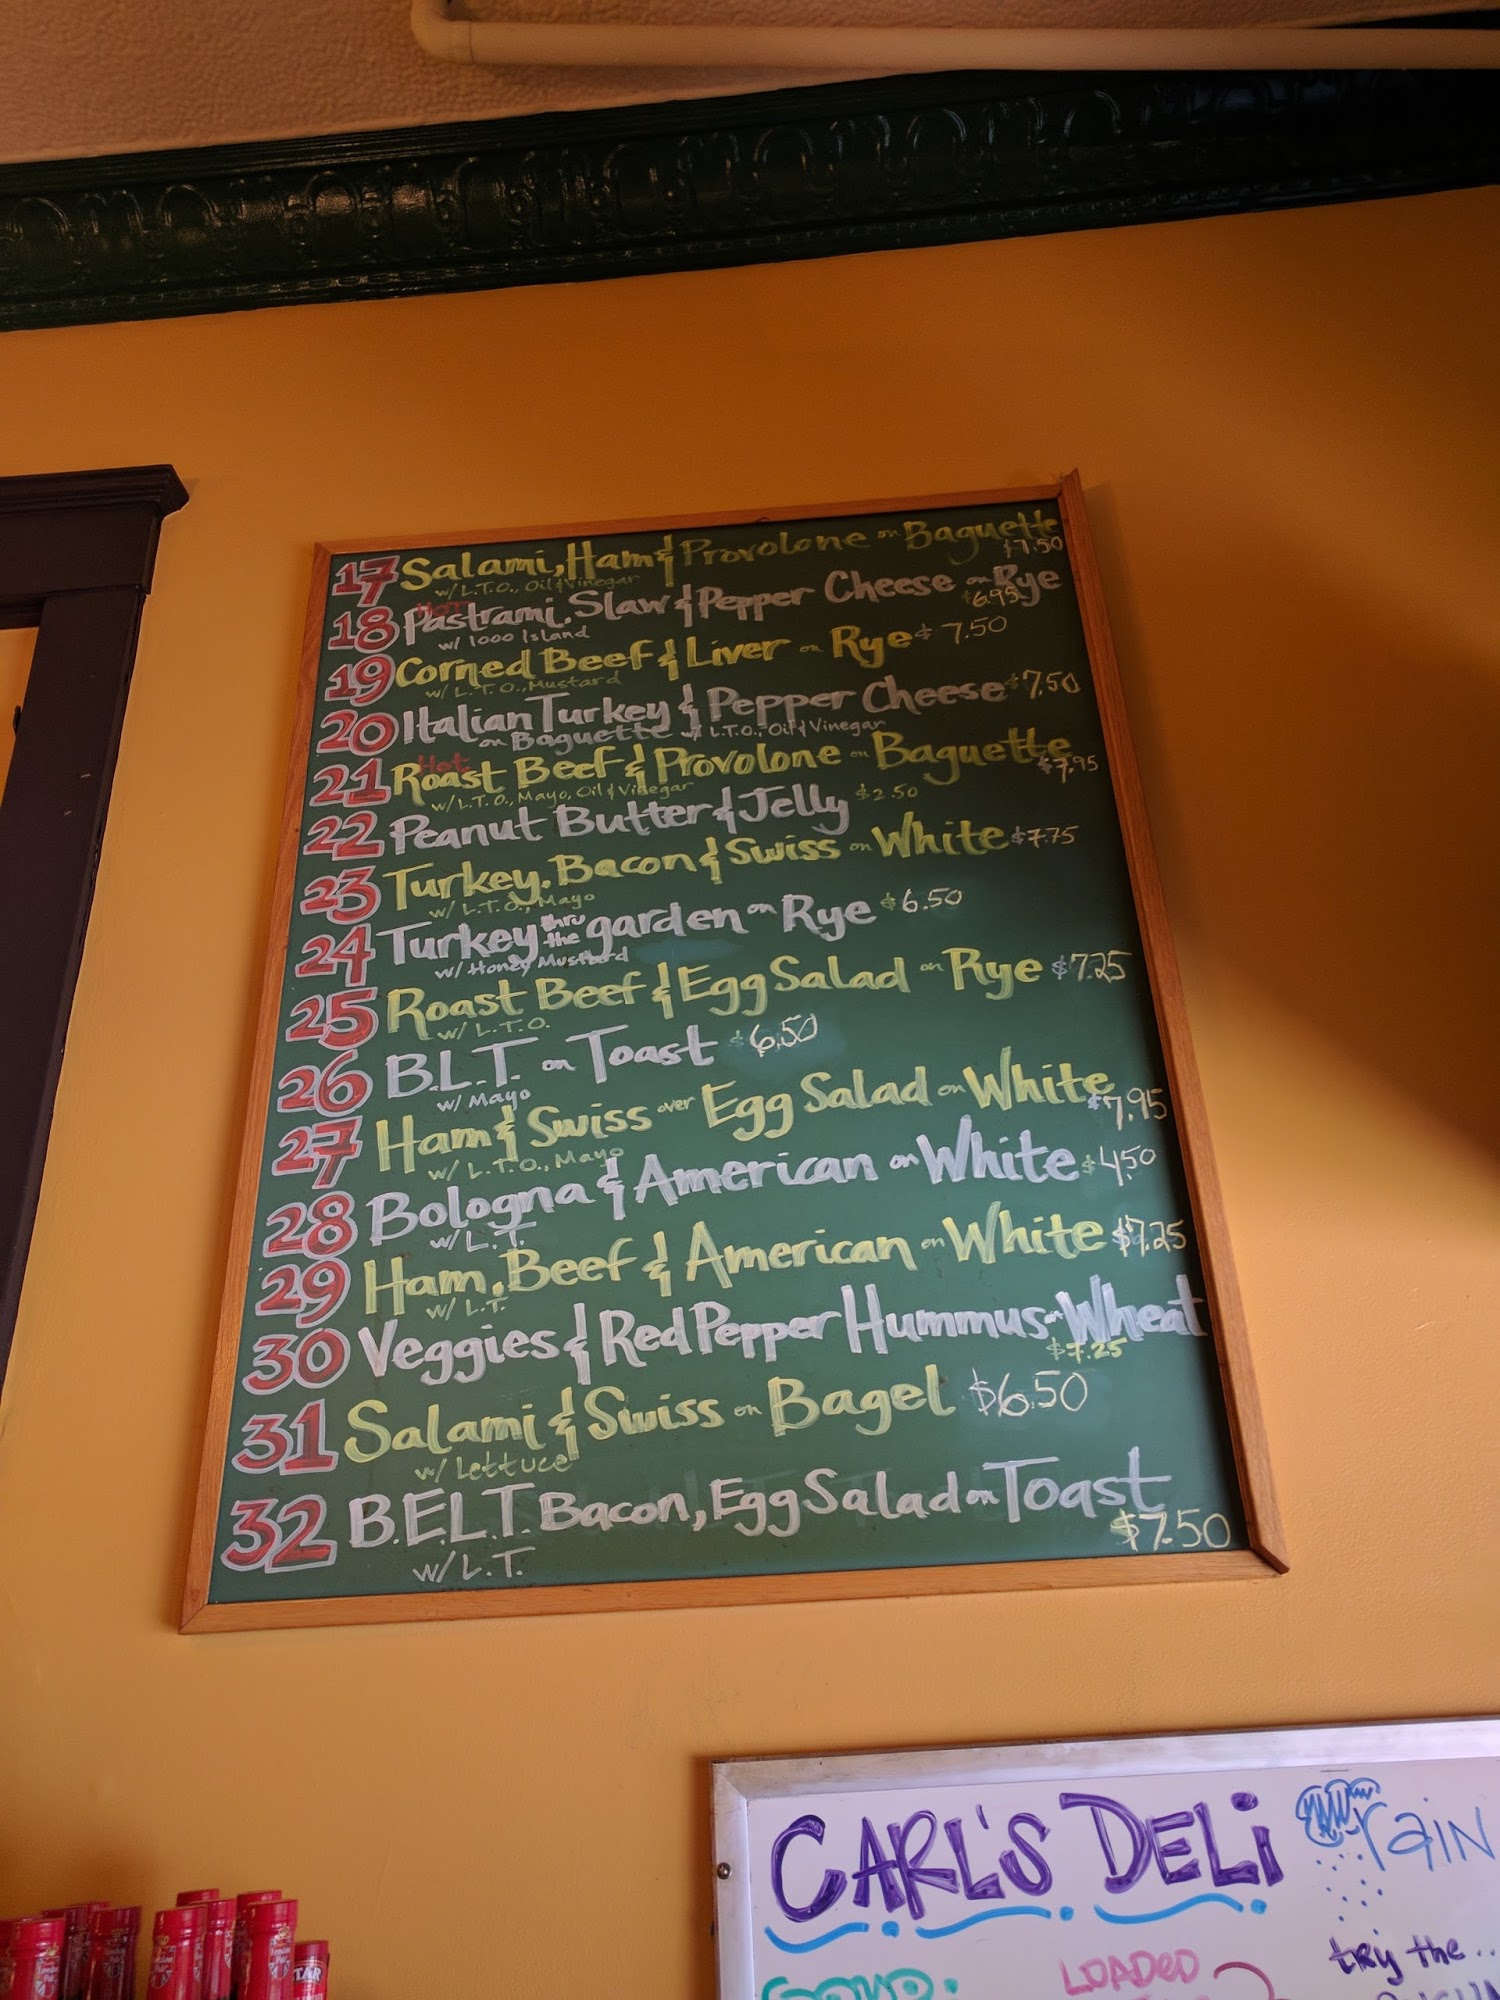 17 Salami, Ham & Provolone on Baguette
$7.50
w/ L.T.O., Oil & Vinegar
18 Hot Pastrami, Slaw & Pepper Cheese on Rye
$6.95
w/ 1000 Island
19 Corned Beef & Liver on Rye $7.50
w/ L.T.O., Mustard
20 Italian Turkey & Pepper Cheese $7.50
on Baguette w/ L.T.O., Oil & Vinegar
21 Hot Roast Beef & Provolone on Baguette
$7.95
w/ L.T.O., Mayo, Oil & Vinegar
22 Peanut Butter & Jelly $2.50
23 Turkey, Bacon & Swiss on White $7.75
w/ L.T.O., Mayo
24 Turkey thru the garden on Rye $6.50
w/ Honey Mustard
25 Roast Beef & Egg Salad on Rye $7.25
w/ L.T.O.
26 B.L.T. on Toast $6.50
w/ Mayo
27 Ham & Swiss over Egg Salad on White
$7.95
w/ L.T.O., Mayo
28 Bologna & American on White $4.50
w/ L.T.
29 Ham, Beef & American on White $7.25
w/ L.T.
30 Veggies & Red Pepper Hummus on Wheat
$7.25
31 Salami & Swiss on Bagel $6.50
w/ Lettuce
32 B.E.L.T. Bacon, Egg Salad on Toast
$7.50
w/ L.T.
CARL'S DELI rain
try the...
LOADED